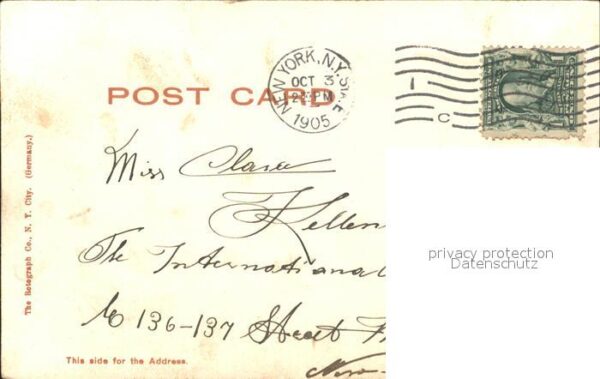 NEW YORK, N.Y. STA. E
OCT 3
2 PM
1905
1
C
POST CARD
Miss Clara
Kellen
The International
E 136-137 Street
New-
privacy protection
Datenschutz
This side for the Address.
The Rotograph Co., N. Y. City. (Germany.)